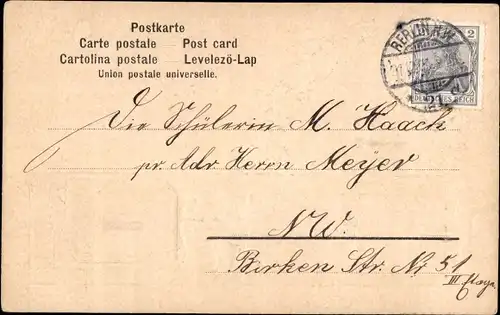 Postkarte
Carte postale — Post card
Cartolina postale — Levelező-Lap
Union postale universelle.
BERLIN N.W.
2
DEUTSCHES REICH
Die Schülerin M. Haack
pr. Adr. Herrn Meyer
NW.
Birken Str. Nr. 51
III Etage